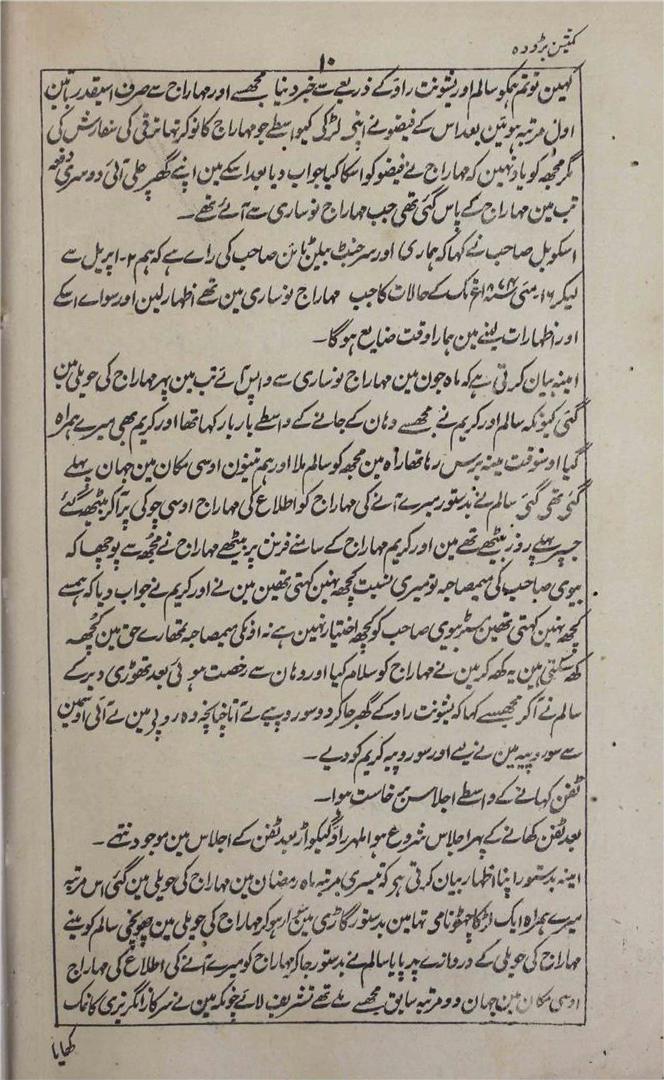 کمیشن بڑودہ
۱۰
کہین تو تم ہمکو سالم اور یشونت راؤ کے ذریعے سے خبر دنیا مجھسے اور مہاراج سے صرف اسیقدر باتین
اول مرتبہ ہوئین بعد اس کے فیضو نے اپنی لڑکی کیواسطے جو مہاراج کا نوکر تھا ترقی کی سفارش کی
مگر مجھ کو یاد نہین کہ مہاراج نے فیضو کو اسکا کیا جواب دیا بعد اسکے مین اپنے گھر چلی آئی دوسری دفعہ
تب مین مہاراج کے پاس گئی تھی جب مہاراج نوساری سے آئے تھے ۔
اسکوبل صاحب نے کہا کہ ہماری اور سرجنٹ بیلن ٹائن صاحب کی راے ہے کہ ہم ۲-اپریل سے
لیکر ۱۶-مئی سنہ ۱۸۷۴ع تک کے حالات کا جب مہاراج نوساری مین تھے اظہار لین اور سواے اسکے
اور اظہارات لینے مین ہمارا وقت ضایع ہوگا ۔
امینہ بیان کرتی ہے کہ ماہ جون مین مہاراج نوساری سے واپس آئے تب مین پہر مہاراج کی حویلی مین
گئی کیونکہ سالم اور کریم نے مجھسے وہان کے جانے کے واسطے بار بار کہا تھا اور کریم بھی میرے ہمراہ
گیا اوسوقت مینہ برس رہا تھا راہ مین مجھ کو سالم ملا اور ہم تینون اوسی مکان مین جہان پہلے
گئی تھی گئے سالم نے بدستور میرے آنے کی مہاراج کو اطلاع کی مہاراج اوسی چوکی پر آکر بیٹھ گئے
جسپر پہلے روز بیٹھے تھے مین اور کریم مہاراج کے سامنے فرش پر بیٹھے مہاراج نے مجھ سے پوچھا کہ
بیوی صاحب کی میمصاحبہ تو میری نسبت کچھ نہین کہتی تھین مین نے اور کریم نے جواب دیا کہ ہمسے
کچھ نہین کہتی تھین مسٹر بیوی صاحب کو کچھ اختیار نہین ہے نہ اونکی میمصاحبہ تمھارے حق مین کچھ
کھ سکتی ہین یہ کھ کر مین نے مہاراج کو سلام کیا اور وہان سے رخصت ہوئی بعد تھوڑی دیر کے
سالم نے آکر مجھسے کہا کہ یشونت راؤ کے گھر جاکر دو سو روپے لے آنا چنانچہ وہ روپے مین لے آئی اوسمین
سے سو روپیہ مین نے لیے اور سو روپیہ کریم کو دیے ۔
ٹفن کہانے کے واسطے اجلاس برخاست ہوا ۔
بعد ٹفن کھانے کے پہر اجلاس شروع ہوا ملہر راؤ گیکواڑ بعد ٹفن کے اجلاس مین موجود نتھے ۔
امینہ بدستور اپنا اظہار بیان کرتی ہی کہ تیسری مرتبہ ماہ رمضان مین مہاراج کی حویلی مین گئی اس مرتبہ
میرے ہمراہ ایک لڑکا چھوٹو نامی تھا مین بدستور گاڑی مین سوار ہوکر مہاراج کی حویلی مین پہونچی سالم کو مینے
مہاراج کی حویلی کے دروازے پر پایا سالم نے بدستور جاکر مہاراج کو میرے آنے کی اطلاع کی مہاراج
اوسی مکان مین جہان دو مرتبہ سابق مجھسے ملے تھے تشریف لائے چونکہ مین نے سرکار انگریزی کا نمک
کھایا